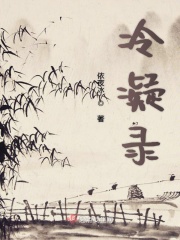 冷凝录
依夜冰心 著